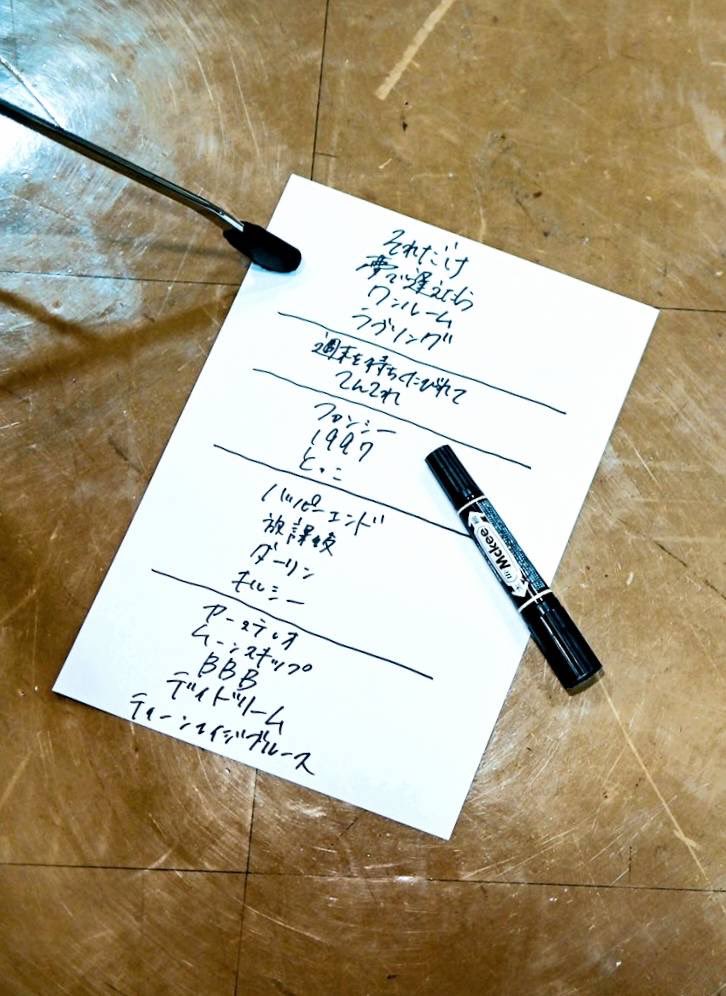 それだけ
夢で逢えたら
ワンルーム
ラブソング
週末を待ちくたびれて
てんてれ
ファンシー
1997
とっこ
ハッピーエンド
放課後
ダーリン
キルシー
アースティオ
ムーンスキップ
BBB
デイドリーム
ティーンエイジブルース
Mckee